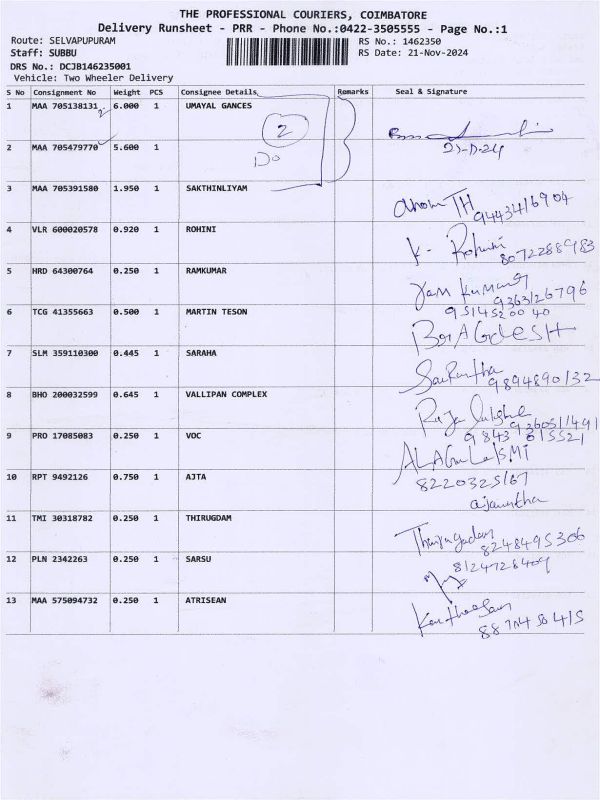 THE PROFESSIONAL COURIERS, COIMBATORE
Delivery Runsheet - PRR - Phone No.:0422-3505555 - Page No.:1
Route: SELVAPUPURAM RS No.: 1462350
Staff: SUBBU RS Date: 21-Nov-2024
DRS No.: DCJB146235001
Vehicle: Two Wheeler Delivery
S No Consignment No Weight PCS Consignee Details Remarks Seal & Signature
1 MAA 705138131 6.000 1 UMAYAL GANCES
2
2 MAA 705479770 5.600 1
Do
3 MAA 705391580 1.950 1 SAKTHINLIYAM
9443416904
4 VLR 600020578 0.920 1 ROHINI K. Rohini
8072288983
5 HRD 64300764 0.250 1 RAMKUMAR Ram Kumar
9363126796
6 TCG 41355663 0.500 1 MARTIN TESON 9514520040
7 SLM 359110300 0.445 1 SARAHA
9894890132
8 BHO 200032599 0.645 1 VALLIPAN COMPLEX
9360511491
9 PRO 17085083 0.250 1 VOC 9843815521
10 RPT 9492126 0.750 1 AJTA 8220325167
ajanntha
11 TMI 30318782 0.250 1 THIRUGDAM
8248495306
12 PLN 2342263 0.250 1 SARSU 8124728404
13 MAA 575094732 0.250 1 ATRISEAN